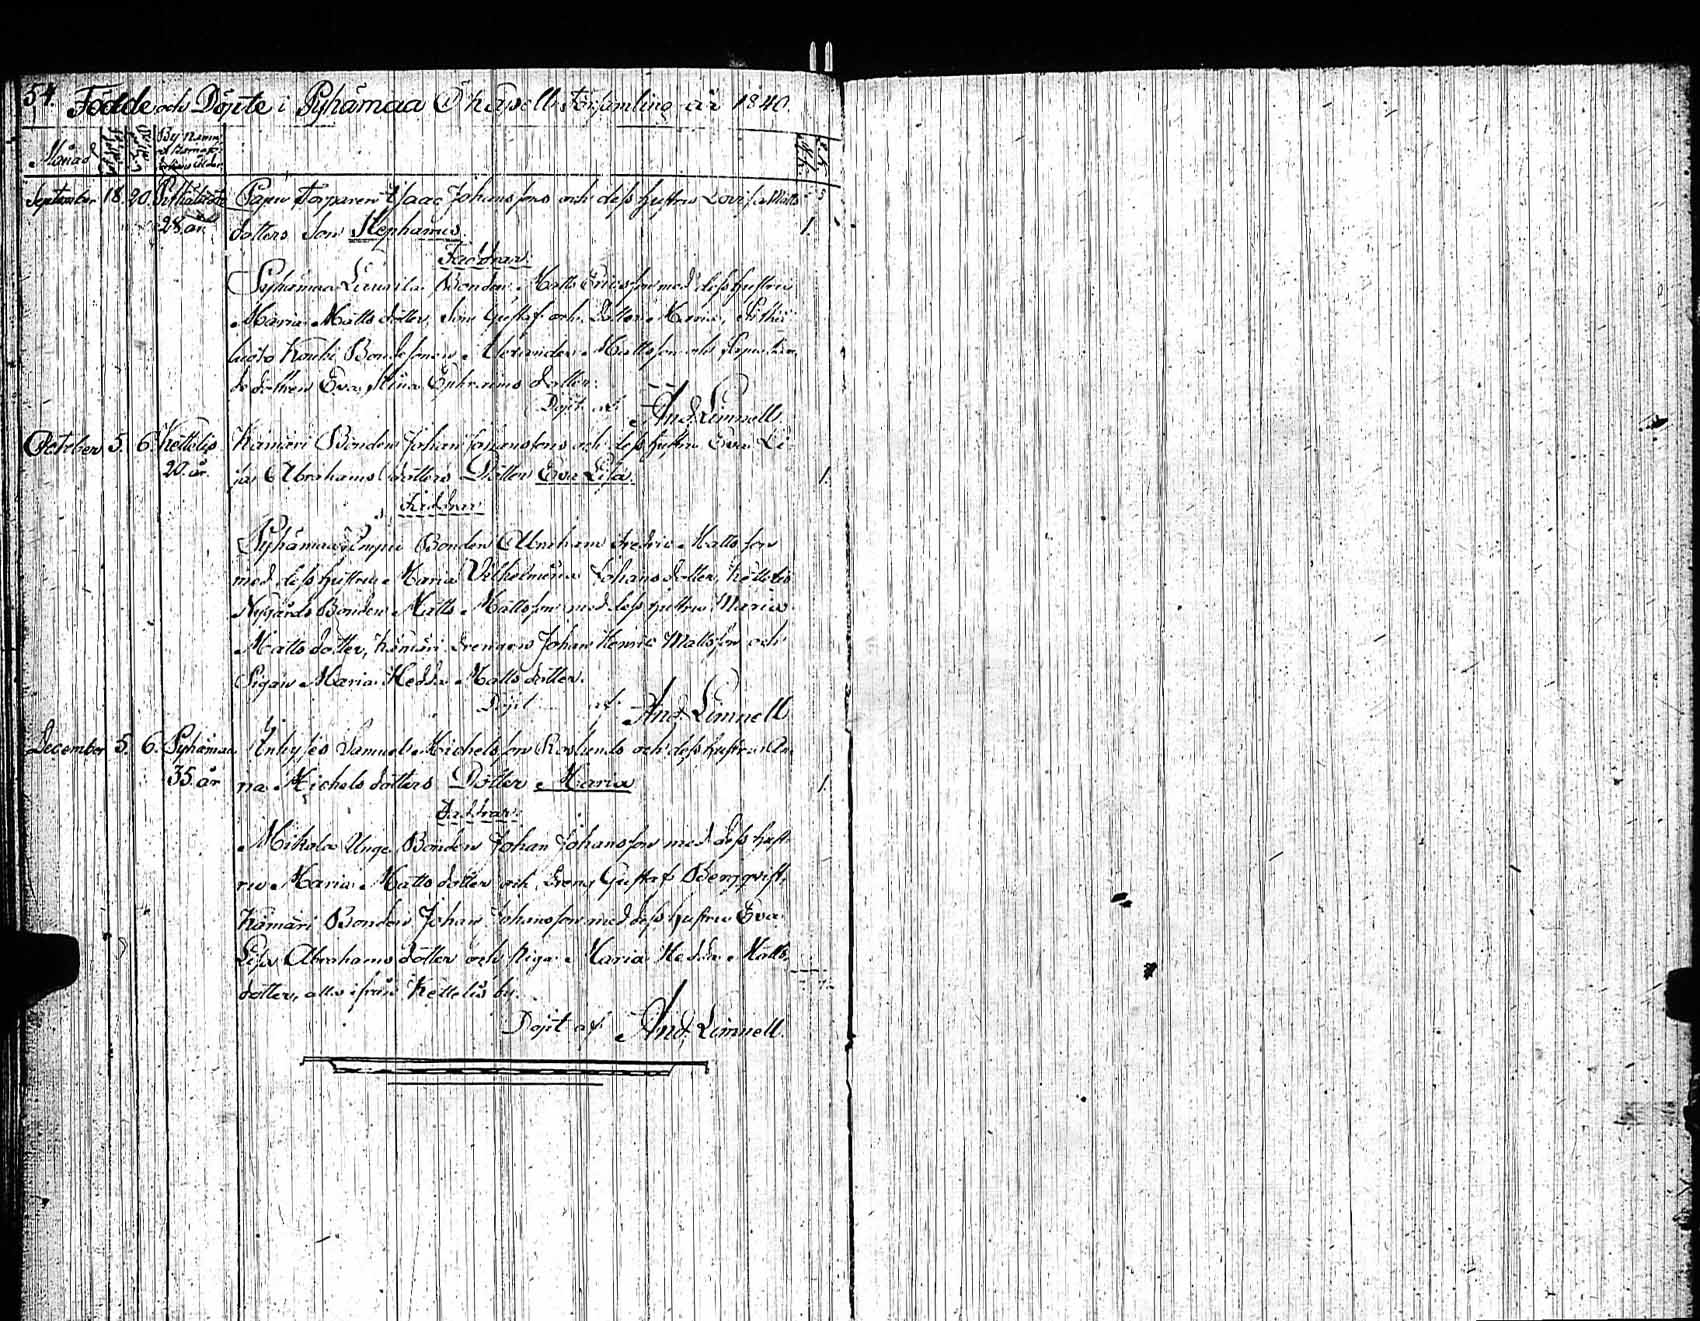 54. Födde och Döpte i Pyhämaa Capells Församling år 1840.
Månad By Namn
September 18. 20. Pitkäluoto Torparen Isaac Johanssons och dess hustru Lovisa Matts
28 år. dotters Son Stephanus. 1.
Faddrar:
Pyhämaa Bonden Matts Ericsson med dess hustru
Maria Matts dotter, Son Gustaf och Dotter Maria, Pitkä
luoto Kouhi Bondesonen Alexander Mattsson och
Eva Stina Ephraims dotter.
Döpt af And. Limnell
October 5. 6. Kettelis Kämäri Bonden Johan Johanssons och dess hustru Eva Li
20. år. sa Abrahams dotters Dotter Eva Lisa. 1.
Faddrar:
Pyhämaa Bonden Abraham Fredric Mattsson
med dess hustru Maria Vilhelmina Johans dotter, Kettelis
Nygårds Bonden Matts Mattsson med dess hustru Maria
Matts dotter, Kämäri Drengen Johan Henric Mattsson och
Pigan Maria Hedda Matts dotter.
Döpt af And. Limnell
December 5. 6. Pyhämaa Inhyses Samuel Michelsson och dess hustru An
35. år na Michels dotters Dotter Maria 1.
Faddrar:
Mikola Unge Bonden Johan Johansson med dess hust
ru Maria Matts dotter och Dreng Gustaf Bergqvist,
Kämäri Bonden Johan Johansson med dess hustru Eva
Lisa Abrahams dotter och Piga Maria Hedda Matts
dotter, alla ifrån Kettelis by.
Döpt af And. Limnell